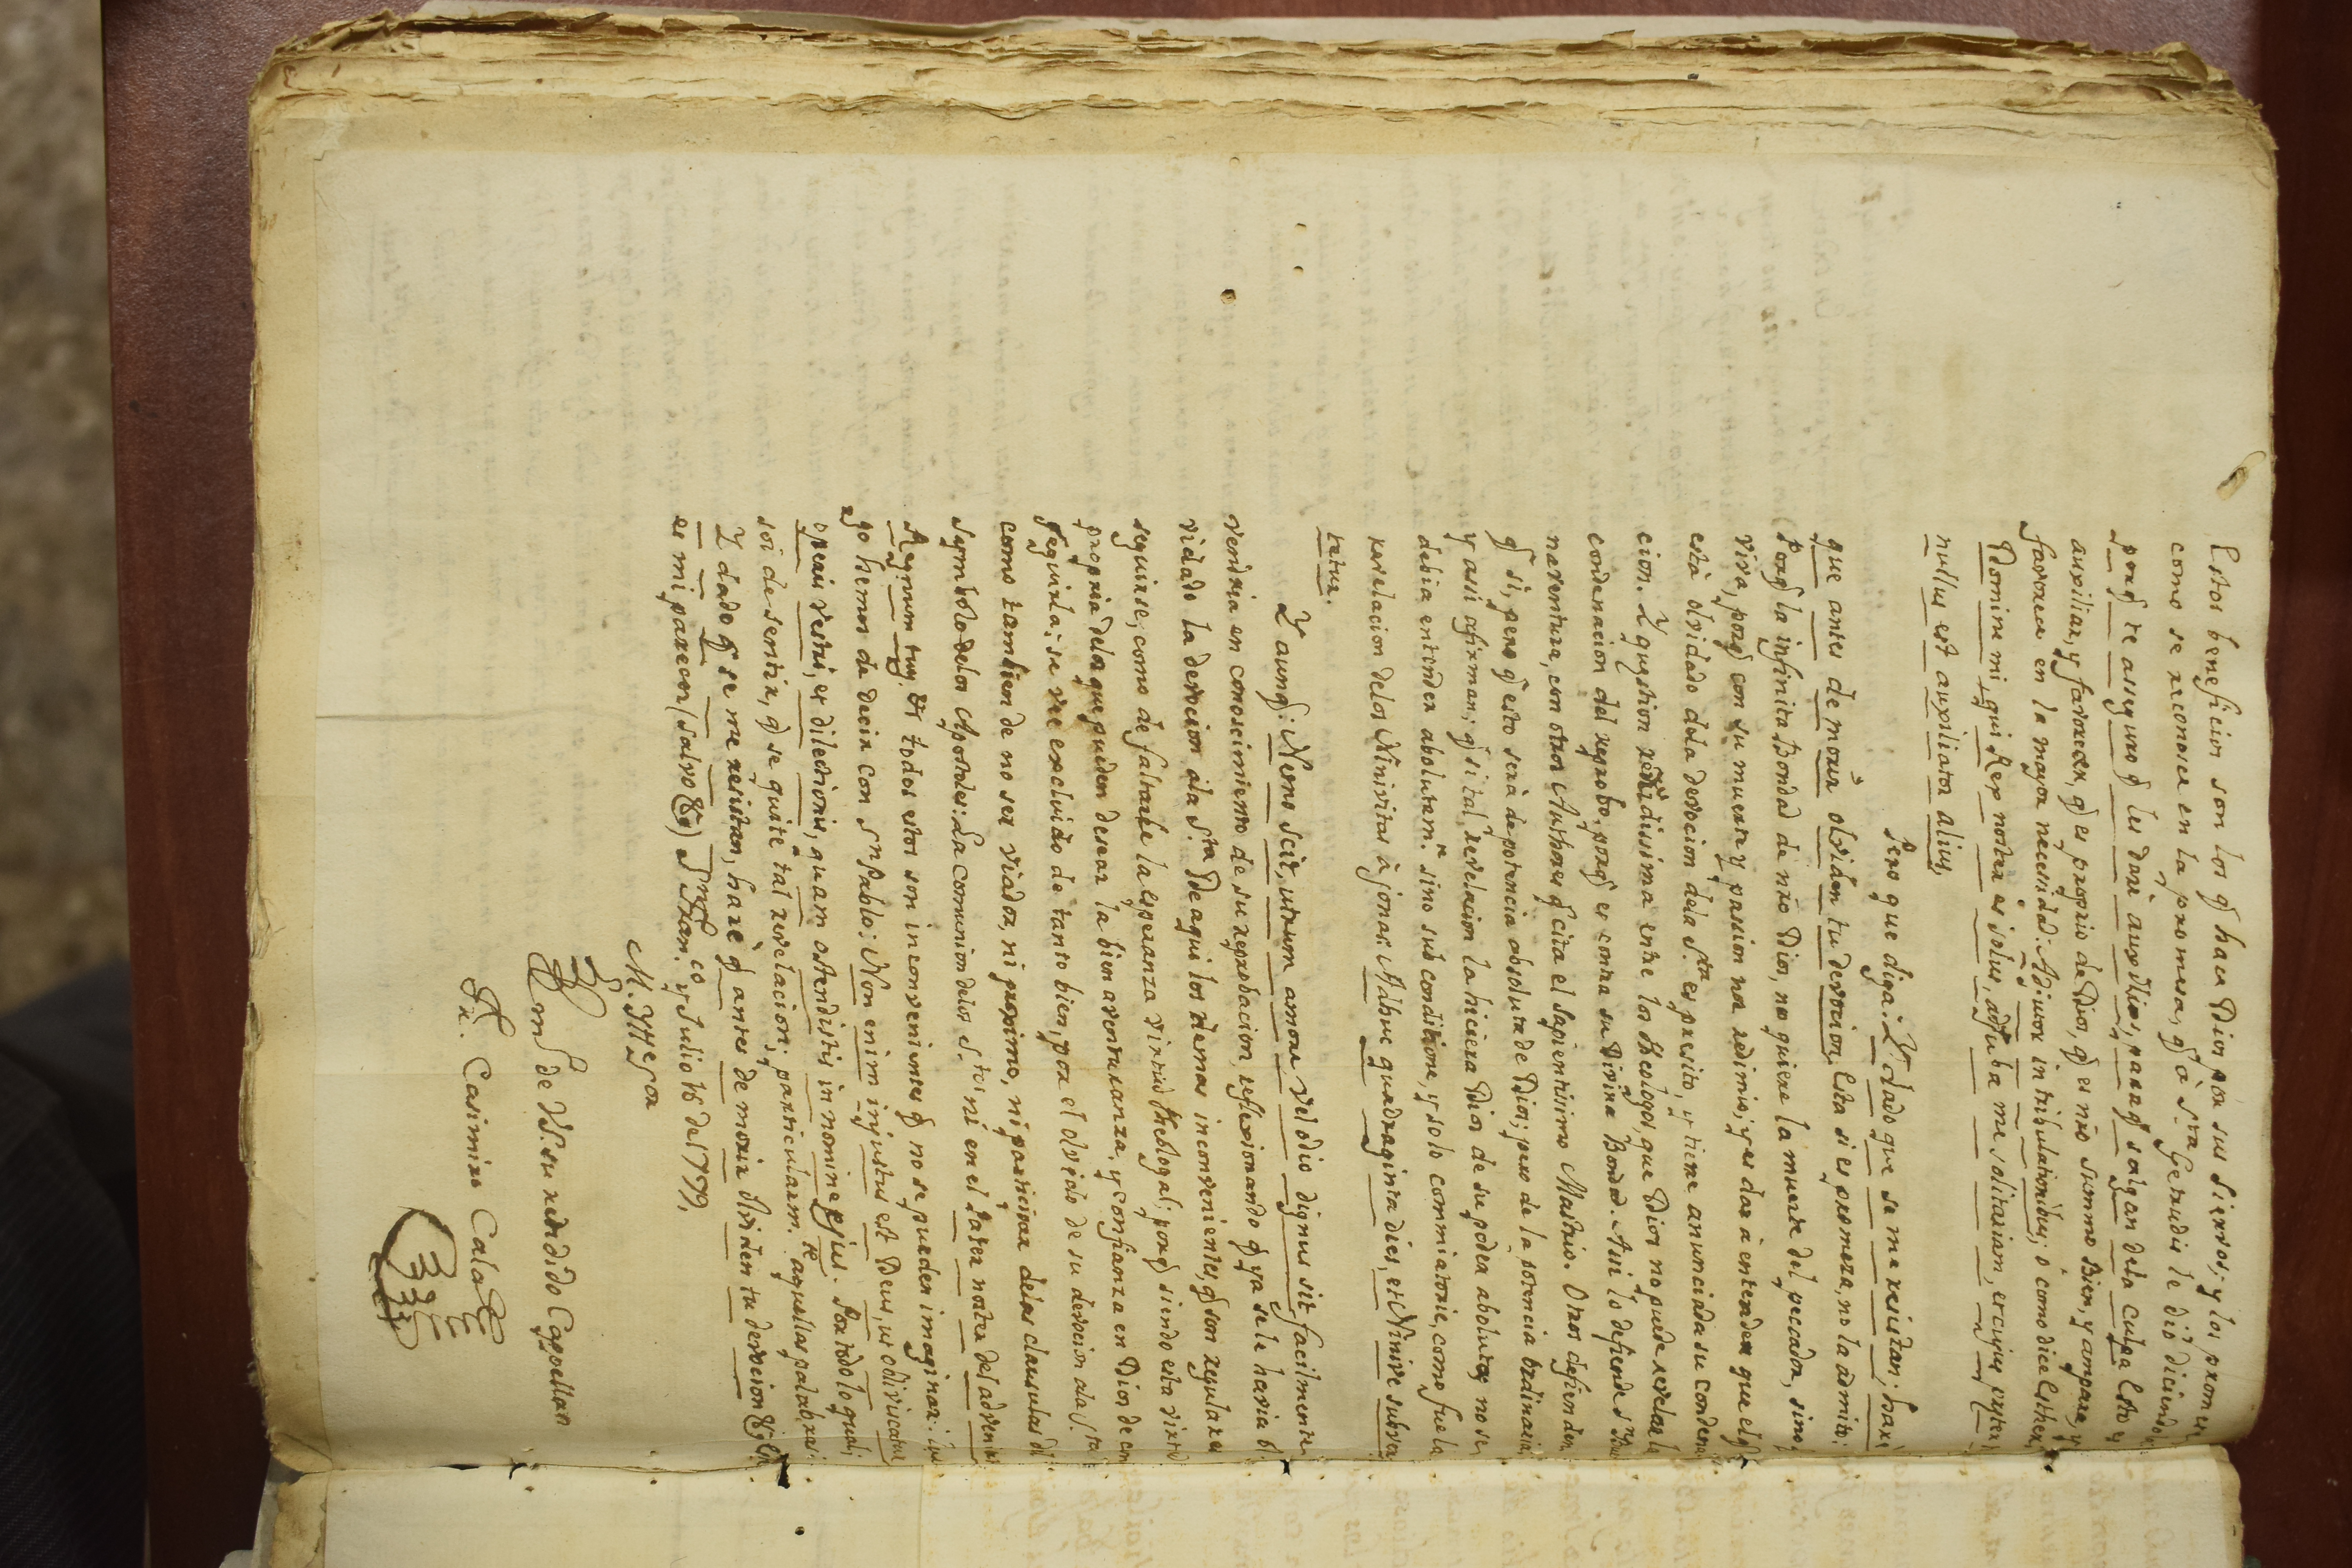 Estos beneficios son los q̃ hace Dios por sus siervos; y los promete
como se reconoce en la promesa, q̃ à S.ta Getrudis le diò diciendo:
porq̃ te asseguro q̃ les darè auxilios, paraq̃ salgan dela culpa. Esto es
auxiliar, y favorecer, q̃ es proprio de Dios, q̃ es nr̃o summo Bien, y ampara, y
favorece en la mayor necesidad: Adiutor in tribulationibus; ò como dice Esther,
Domine mi, qui Rex noster es solus, adjuba me solitariam, et cujus preter te
nullus est auxiliator alius,
Pero que diga: Y dado que se me resistan; harè
que antes de morir olviden tu devocion. Esta si es promesa, no la admito:
Porq̃ la infinita Bondad de nr̃o Dios, no quiere la muerte del pecador, sino q̃
viva, porq̃ con su muerte y passion nos redimio; y es dar à entender que el q̃
està olvidado dela devocion dela S.ta es presito, y tiene anunciada su condena-
cion. Y question reñidissima entre los Theologos, que Dios no puede revelar la
condenacion del reprobo, porq̃ es contra su Divina Bondad. Asi lo defiende S.n
naventura, con otros Authores q̃ cita el sapientisimo Mastrio. Otros defienden
q̃ si, pero q̃ esto serà de potencia absoluta de Dios; pero de la potencia ordinaria, no
y assi afirman; q̃ si tal revelacion la hiciera Dios de su poder absoluto, no se
debia entender absolutam.te sino sub conditione, y solo comminatorie, como fue la
revelacion delos Ninivitas à Jonas: Adhuc quadraginta dies, et Ninive subver-
tetur.
Y aunq̃: Nemo scit, utrum amore vel odio dignus sit facilmente
vendria en conoscimiento de su reprobacion, reflexionando q̃ ya se le havia ol-
vidado la devocion ala S.ta De aqui los demas inconvenientes, q̃ son regulares
seguirse; como de faltarle la esperanza virtud theologal; porq̃ siendo esta virtud
propria delos que pueden desear la bienaventuranza, y confianza en Dios de con-
seguirla; se vee excluido de tanto bien, por el olvido de su devocion ala S.ta
como tambien de no ser viador, ni proximo, ni participar delas clausulas del
symbolo delos Apostoles: La comunion delos S.tos ni en el Pater noster del adveniat
Regnum tuum. Et todos estos son inconvenientes q̃ no se pueden imaginar:
go hemos de decir con S.n Pablo: Non enim injustus est Deus, ut obliviscatur
operis vestri, et dilectionis, quam ostenditis in nomine ejus. Por todo lo qual;
soi de sentir, q̃ se quite tal revelacion; particularm.te aquellas palabras:
Y dado q̃ se me resistan, harè q̃ antes de morir olviden tu devocion &c.
es mi parecer (salvo &a) S.n Fran.co y Julio 16 del 1779,
M. Ittre Sor
B. m. de V.S. su rendido Cappellan
Fr. Casimiro Cala